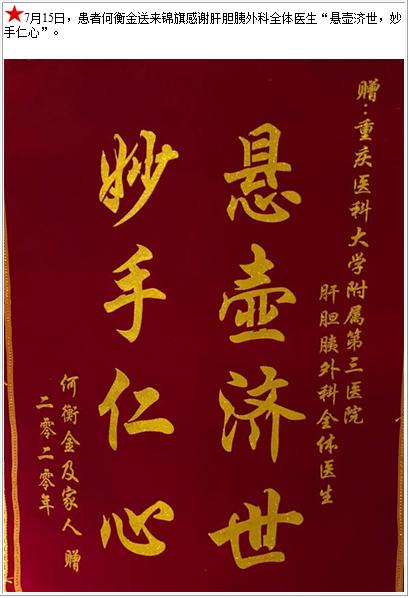 ★7月15日，患者何衡金送来锦旗感谢肝胆胰外科全体医生“悬壶济世，妙
手仁心”。
赠：重庆医科大学附属第三医院
肝胆胰外科全体医生
悬壶济世
妙手仁心
何衡金及家人 赠
二零二零年